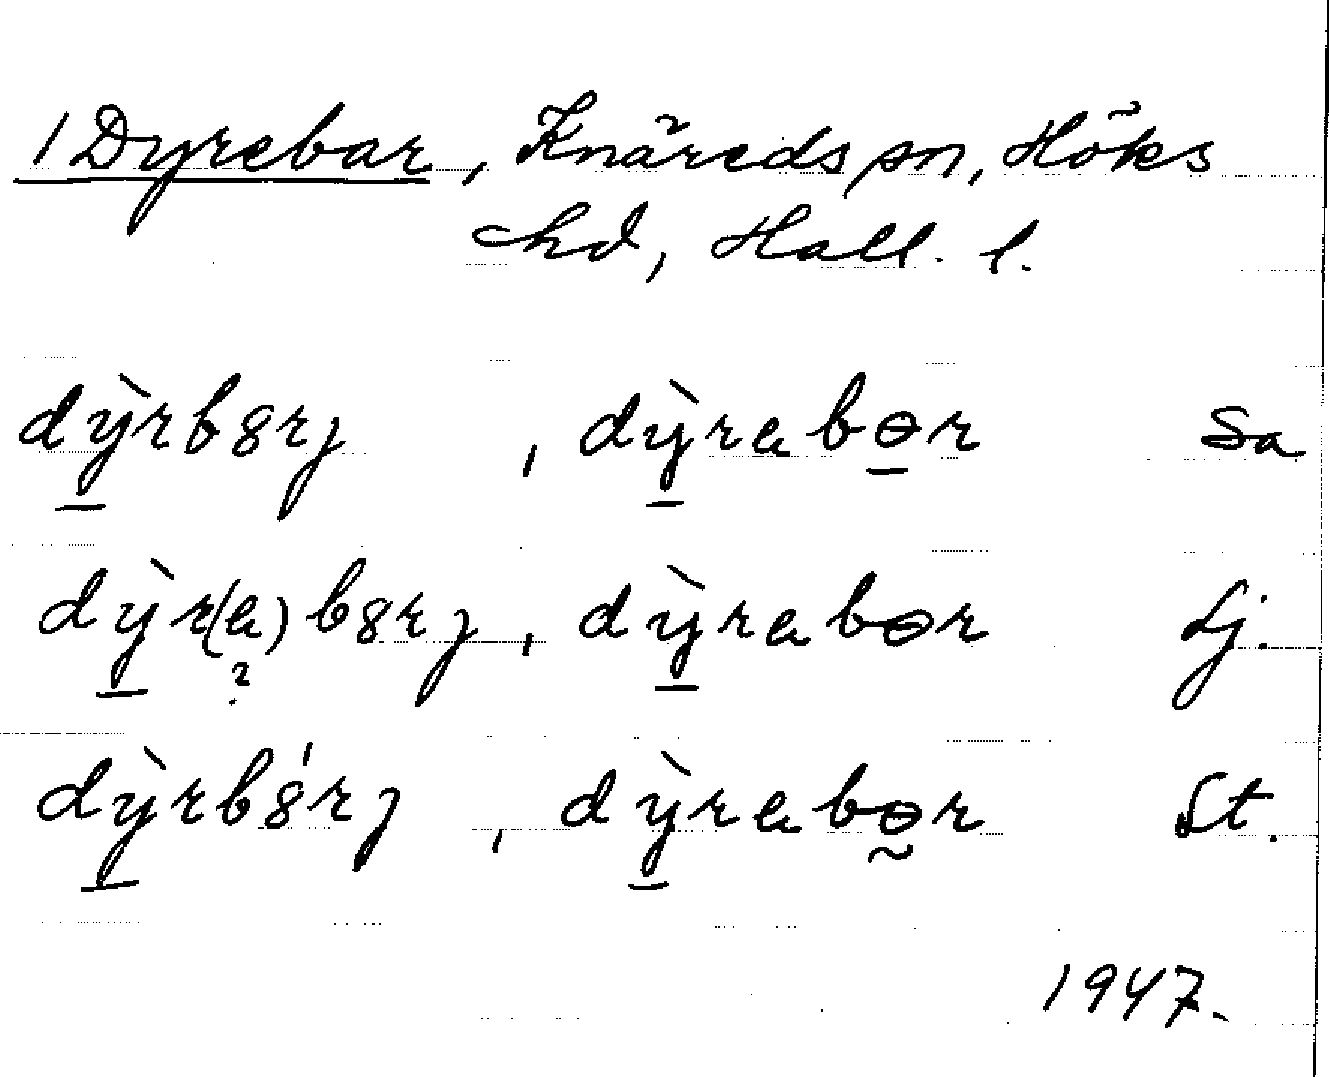 1 Dyrebar, Knäreds sn, Höks
hd, Hall. l.
dỳ̠rbȣrȷ, dỳ̠rabɵ̠r Sa
dỳ̠r(a)bȣrȷ, dỳ̠rabɵr Lj.
?
dỳ̠rbȣ́rȷ, dỳ̠rabɵ̰r St.
1947.